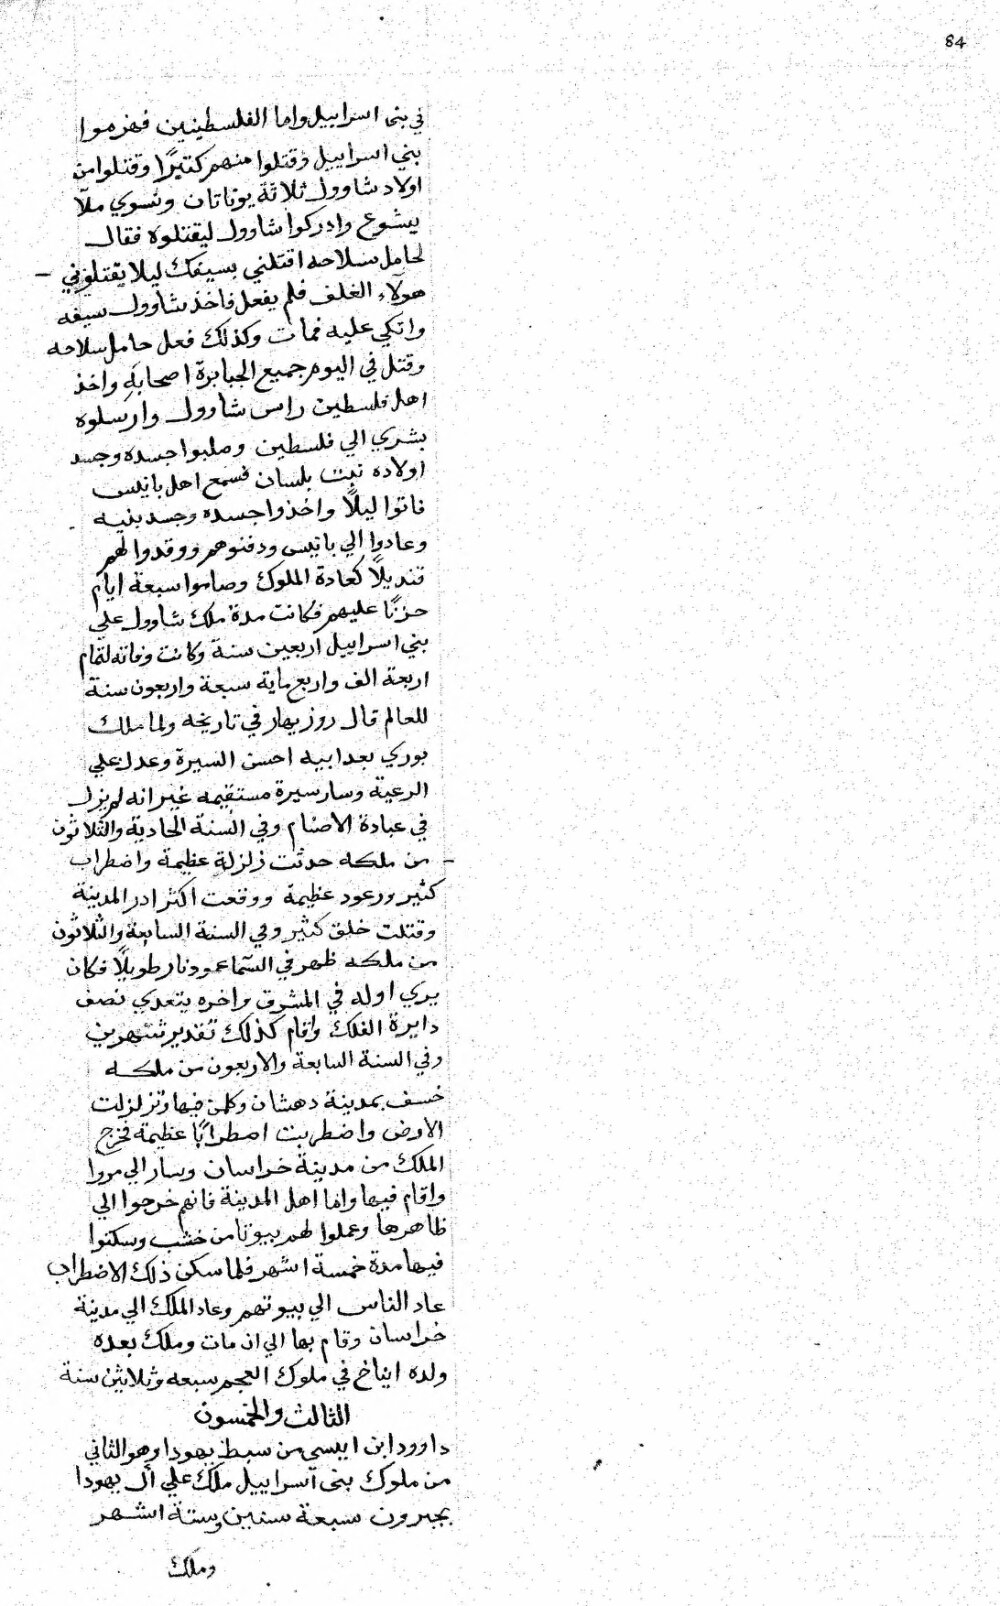 84
في بنى اسراييل واما الفلسطينين فهزموا
بني اسراييل وقتلوا منهم كثيرًا وقتلوا من
اولاد شاوول ثلاثة يوناتان ونسوي ملآ
يشوع وادركوا شاوول ليقتلوه فقال
لحامل سلاحه اقتلني بسيفك ليلا يقتلوني
هولآء الغلف فلم يفعل فاخذ شاوول سيفه
واتكي عليه فمات وكذلك فعل حامل سلاحه
وقتل في اليوم جميع الجبابرة اصحابه واخذ
اهل فلسطين راس شاوول وارسلوه
بشري الي فلسطين وصلبوا جسده وجسد
اولاده بلسان فسمع اهل يابيس
فاتوا ليلًا واخذوا جسده وجسد بنيه
وعادوا الي يابيس ودفنوهم ووقدوا لهم
قنديلًا كعادة الملوك وصاموا سبعة ايام
حزنًا عليهم فكانت مدة ملك شاوول علي
بني اسراييل اربعين سنة وكانت وفاته لتمام
اربعة الف واربع ماية سبعة واربعون سنة
للعالم قال روزبهار في تاريخه ولما ملك
بوري بعد ابيه احسن السيرة وعدل علي
الرعية وسار سيرة مستقيمه غير انه لم يزل
في عبادة الاصنام وفي السنة الحادية والثلاثون
من ملكه حدثت زلزلة عظيمة واضطراب
كثير ورعود عظيمة ووقعت اكثر ادر المدينة
وقتلت خلق كثير وفي السنة السابعة والثلاثون
من ملكه ظهر في السما عمود نار طويلًا فكان
يري اوله في المشرق واخره يتعدي نصف
دايرة الفلك واقام كذلك تقدير شهرين
وفي السنة السابعة والاربعون من ملكه
خسف بمدينة دهشان وكلمن فيها وتزلزلت
الارض واضطربت اضطرابًا عظيمة فخرج
الملك من مدينة خراسان وسار الي مروا
واقام فيها واما اهل المدينة فانهم خرجوا الي
ظاهرها وعملوا لهم بيوتا من خشب وسكنوا
فيها مدة خمسة اشهر فلما سكن ذلك الاضطراب
عاد الناس الي بيوتهم وعاد الملك الي مدينة
خراسان وقام بها الي ان مات وملك بعده
ولده في ملوك العجم سبعه وثلاثين سنة
الثالث والخمسون
داوود ابن ايسى من سبط يهودا وهو الثاني
من ملوك بنى اسراييل ملك علي آل يهودا
بحبرون سبعة سنين وستة اشهر
وملك